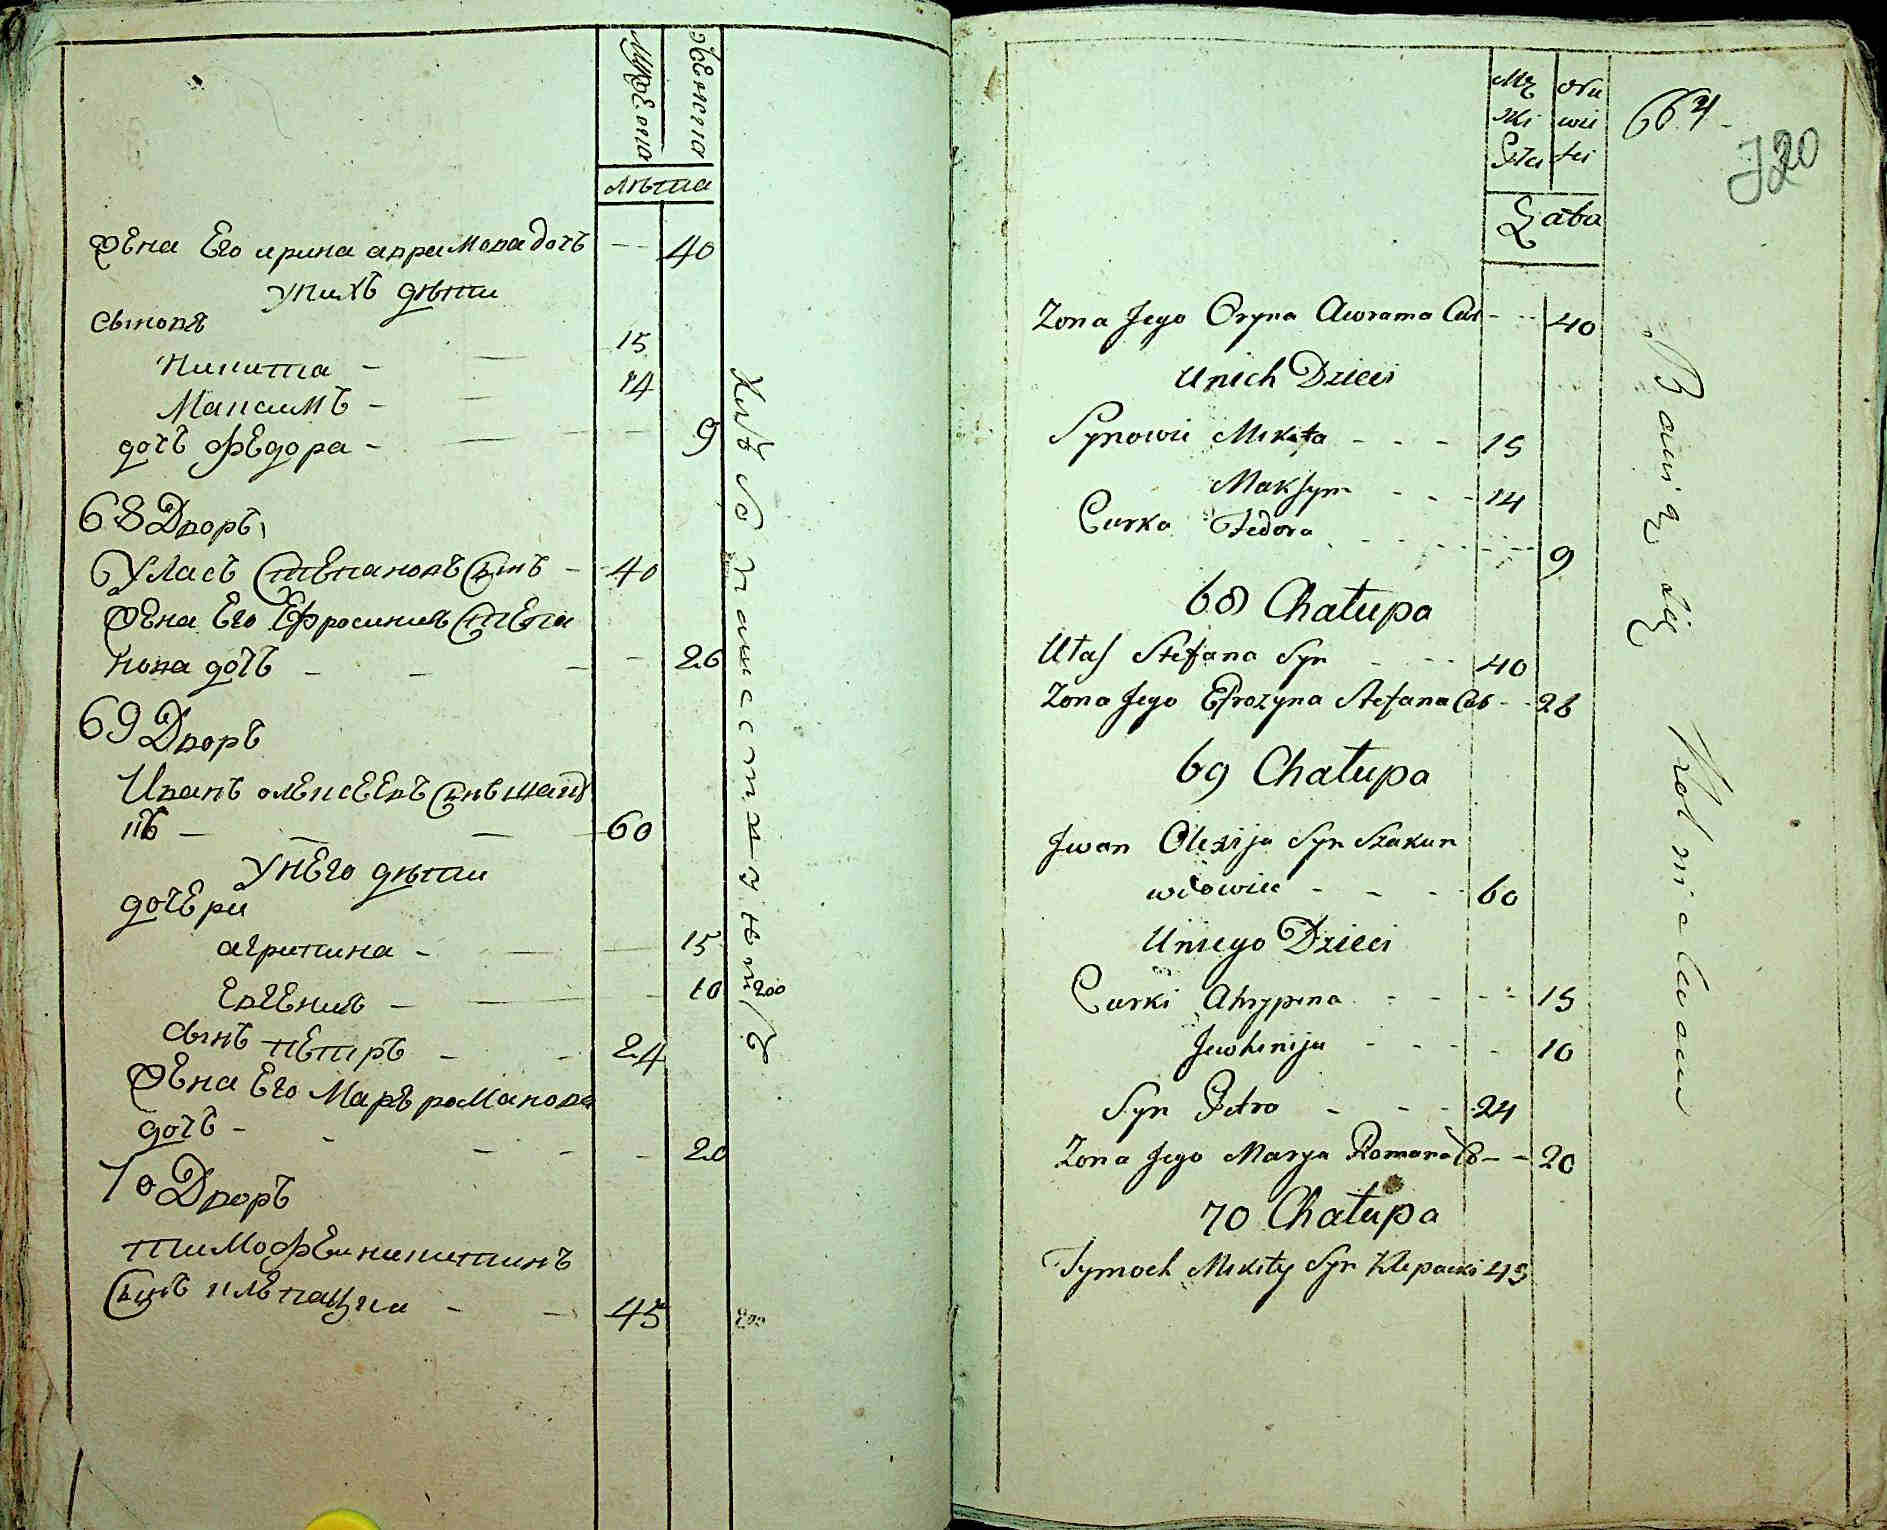 Мужеска
Женска
Лѣта
Жена Его ирина аврамова дочъ -- 40
у нихъ дѣти
сыновя
Никита - 15
Максимъ - 14
дочъ Федора - 9
68 Дворъ
Уласъ Степановъ Сынъ - 40
Жена Его Ефросиния Степа
нова дочъ - 26
69 Дворъ
Иванъ олексеевъ Сынъ
60
у него дѣти
дочери
агрипина - 15
Евгения - 10
Сынъ петръ - 24
Жена Его Маря романова
дочъ - 20
70 Дворъ
тимофеи никитинъ
Сынъ клепацки - 45
200
Mę Nie
ski wie
Płci ści
Lata
664
320
Zona Jego Oryna Awrama Cur - 40
Unich Dzieci
Synowie Mikita - - - 15
Maksym - - - 14
Curka Fedora - - - 9
68 Chałupa
Ułas Stefana Syn - - 40
Zona Jego Efrozyna Stefana Cór - - 26
69 Chałupa
Jwan Olexija Syn Szakun
wdowiec - - - 60
Uniego Dzieci
Curki Ahrypina - - - 15
Jewhenija - - - 10
Syn Petro - - - 24
Zona Jego Marya Romana Có - - 20
70 Chałupa
Tymoch Mikity Syn Klepacki 45
Bawią się Rolnictwem